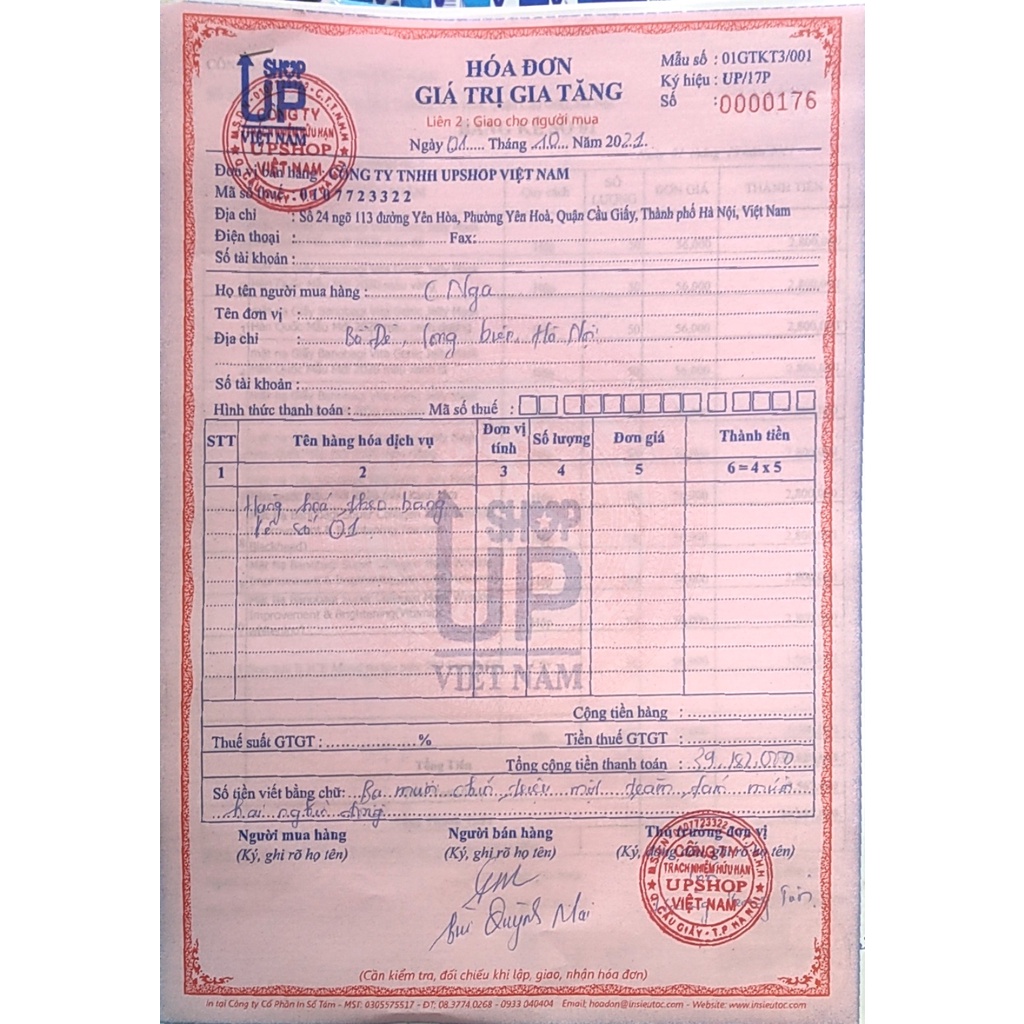 SHOP
UP
VIỆT NAM
HÓA ĐƠN
GIÁ TRỊ GIA TĂNG
Liên 2 : Giao cho người mua
Ngày 01 Tháng 10 Năm 2021.
Mẫu số : 01GTKT3/001
Ký hiệu : UP/17P
Số : 0000176
CÔNG TY
TRÁCH NHIỆM HỮU HẠN
UPSHOP
VIỆT NAM
Đơn vị bán hàng : CÔNG TY TNHH UPSHOP VIỆT NAM
Mã số thuế : 0107723322
Địa chỉ : Số 24 ngõ 113 đường Yên Hòa, Phường Yên Hoà, Quận Cầu Giấy, Thành phố Hà Nội, Việt Nam
Điện thoại : Fax:
Số tài khoản :
Họ tên người mua hàng : C Nga
Tên đơn vị :
Địa chỉ : Bồ Đề, Long biên, Hà Nội
Số tài khoản :
Hình thức thanh toán : Mã số thuế :
STT Tên hàng hóa dịch vụ Đơn vị tính Số lượng Đơn giá Thành tiền
1 2 3 4 5 6 = 4 x 5
Hàng hoá theo bảng
kê số 01
SHOP
UP
VIỆT NAM
Cộng tiền hàng :
Thuế suất GTGT : % Tiền thuế GTGT :
Tổng cộng tiền thanh toán : 39.182.000
Số tiền viết bằng chữ: Ba mươi chín triệu một trăm tám mươi
hai nghìn đồng
Người mua hàng Người bán hàng Thủ trưởng đơn vị
(Ký, ghi rõ họ tên) (Ký, ghi rõ họ tên) (Ký, đóng dấu, ghi rõ họ tên)
CÔNG TY
TRÁCH NHIỆM HỮU HẠN
UPSHOP
VIỆT NAM
Q. CẦU GIẤY - T.P HÀ NỘI
Bùi Quỳnh Mai
(Cần kiểm tra, đối chiếu khi lập, giao, nhận hóa đơn)
In tại Công ty Cổ Phần In Số Tám - MST: 0305575517 - ĐT: 08.3774.0268 - 0933 040404 Email: hoadon@insieutoc.com - Website: www.insieutoc.com